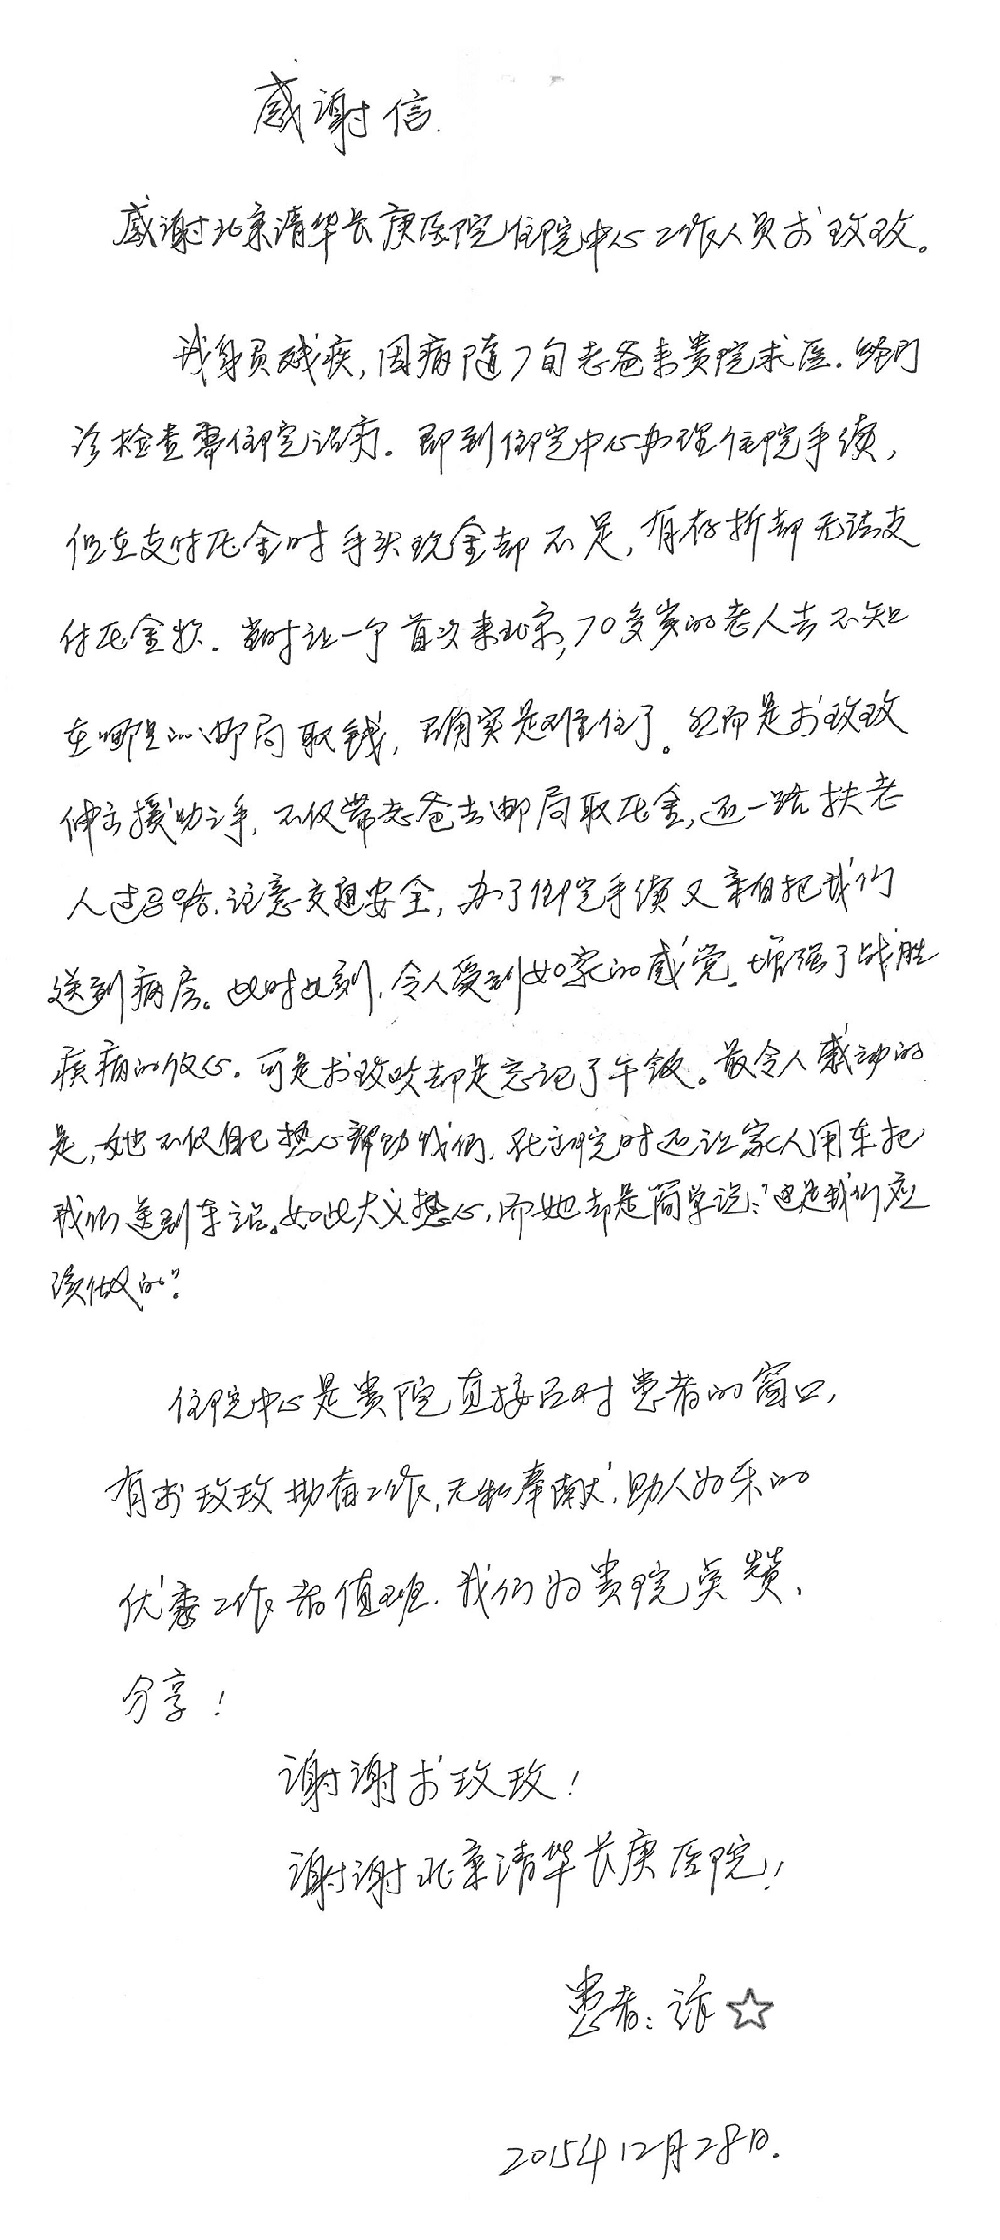 感谢信
感谢北京清华长庚医院住院中心工作人员书玫玫。
我身员残疾，因病随7旬老爸来贵院求医．经门
诊检查需住院治疗．即到住院中心办理住院手续，
但在支付压金时手头现金却不足，有存折却无法支
付压金款．当时让一个首次来北京，70多岁的老人去不知
在哪里的邮局取钱，确实是难住了。然而是书玫玫
伸出援助之手，不仅带老爸去邮局取压金，还一路扶老
人过马路．注意交通安全，办了住院手续又亲自把我们
送到病房。此时此刻，令人受到如家的感觉．增强了战胜
疾病的信心．可是书玫玫却是忘记了午饭。最令人感动的
是，她不仅自己热心帮助我们，在出院时还让家人用车把
我们送到车站。如此大义热心，而她却是简单说：“这是我们应
该做的”．
住院中心是贵院直接面对患者的窗口，
有书玫玫勤奋工作，无私奉献，助人为乐的
优秀工作者值班．我们为贵院点赞、
分享！
谢谢书玫玫！
谢谢北京清华长庚医院！
患者：许☆
2015年12月28日．